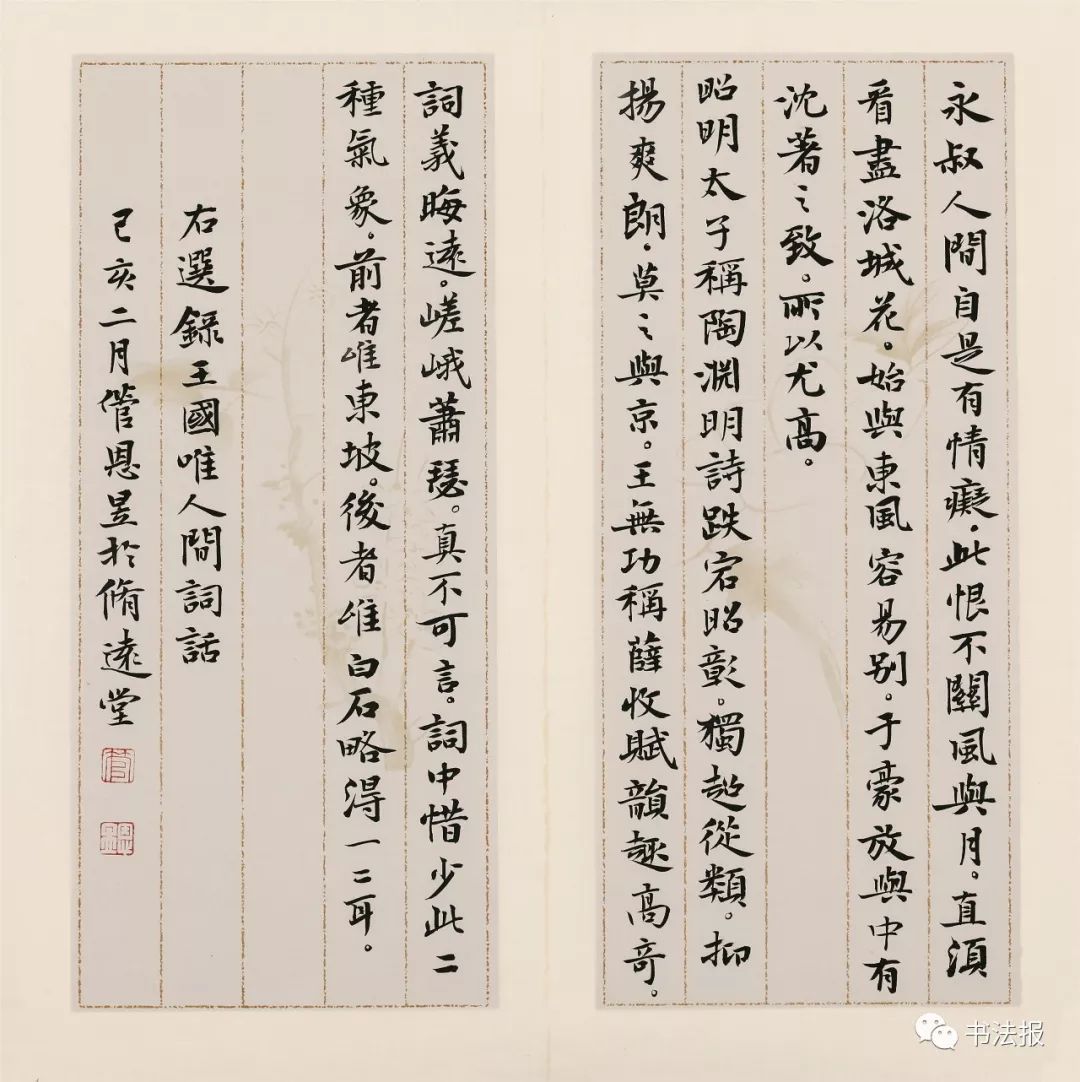 永叔人間自是有情癡，此恨不關風與月。直須
看盡洛城花。始與東風容易别。于豪放與中有
沈著之致。所以尤高。
昭明太子稱陶淵明詩跌宕昭彰。獨超從類。抑
揚爽朗，莫之與京。王無功稱薛收賦韻趣高奇。
詞義晦遠。嵯峨蕭瑟。真不可言。詞中惜少此二
種氣象，前者唯東坡。後者唯白石略得一二耳。
右選録王國唯人間詞話
己亥二月管恩昱於脩遠堂
管
书法报